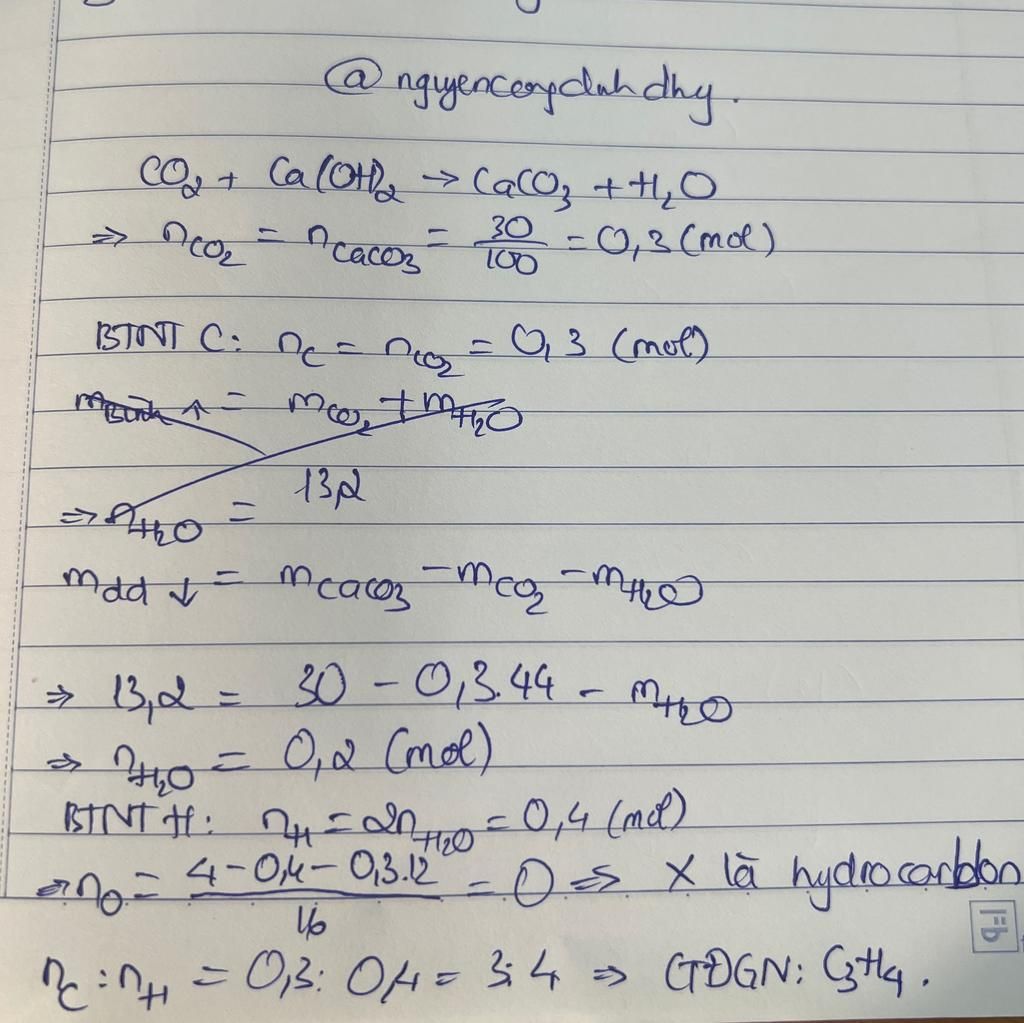 @nguyencongdinhdhy.
CO₂ + Ca(OH)₂ → CaCO₃ + H₂O
⇒ n_CO₂ = n_CaCO₃ = 30/100 = 0,3 (mol)
BTNT C: n_C = n_CO₂ = 0,3 (mol)
m_Bình ↑ = m_CO₂ + m_H₂O
⇒ n_H₂O = 13,2
m_dd ↓ = m_CaCO₃ - m_CO₂ - m_H₂O
⇒ 13,2 = 30 - 0,3.44 - m_H₂O
⇒ n_H₂O = 0,2 (mol)
BTNT H: n_H = 2n_H₂O = 0,4 (mol)
⇒ n_O = (4 - 0,4 - 0,3.12)/16 = 0 ⇒ X là hydrocarbon
n_C : n_H = 0,3 : 0,4 = 3:4 ⇒ CTĐGN: C₃H₄.